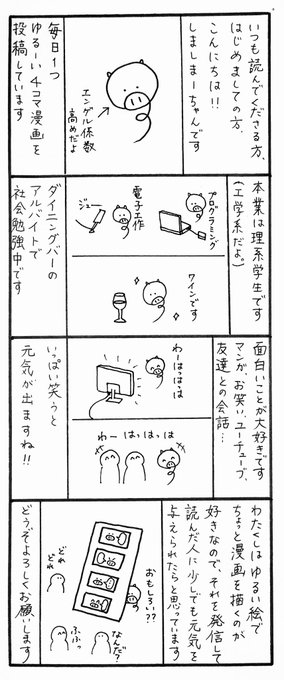 いつも読んでくださる方、
はじめましての方、
こんにちは!!
しましまーちゃんです
エンゲル係数
高めだよ
毎日1つ
ゆるーい4コマ漫画を
投稿しています
本業は理系学生です
(工学系だよ。)
プログラミング
電子工作
ジュー
ワインです
ダイニングバーの
アルバイトで
社会勉強中です
面白いことが大好きです
マンガ、お笑い、ユーチューブ、
友達との会話…
わーはっはっは
わーはっはっは
いっぱい笑うと
元気が出ますね!!
わたくしはゆるい絵で
ちょっと漫画を描くのが
好きなので、それを発信して
読んだ人に少しでも元気を
与えられたらと思っています
おもしろい??
なんだ?
ふふっ
どれ
どれ
どうぞよろしくお願いします